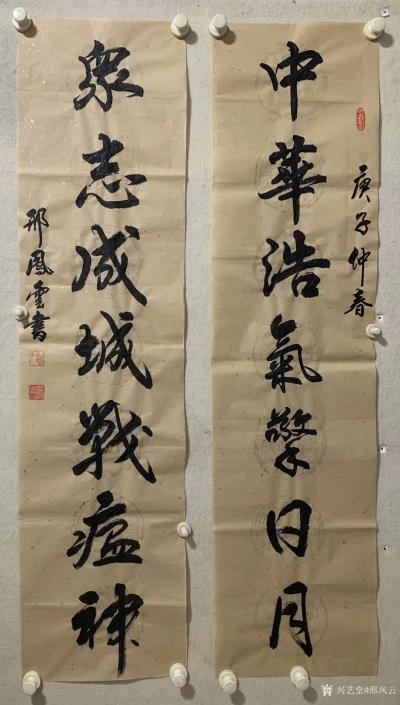 中華浩氣擎日月
庚子仲春
衆志成城戰瘟神
邢鳳雲書
兴艺堂@邢风云